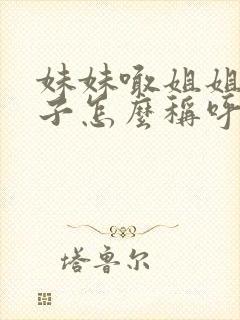 妹妹嗽姐姐
子怎麼稱呼
塔魯尔